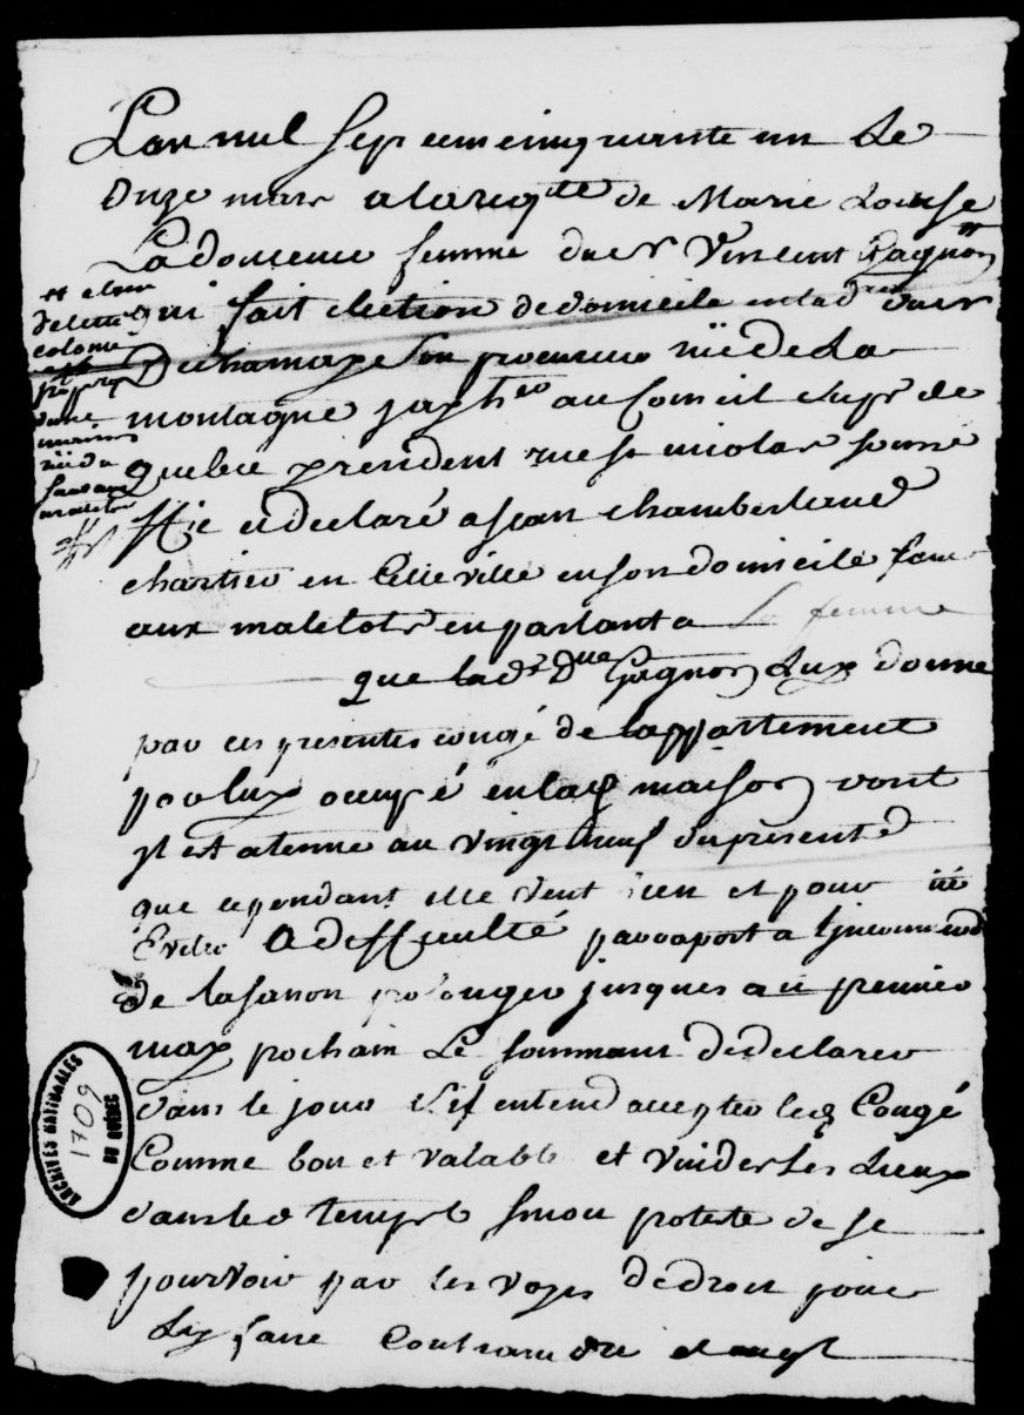 L'an mil sept cent cinquante un Le
Onze mars a la reqte de Marie Louise
Ladouceur femme du sr Vincent Gagnon
qui fait election de domicile en la dre du sr
Dechamaxe son procureur rüe de La
montagne jay hier au Conseil supr de
quebec y resident rue st nicolas soussé
signifie et declaré a jean chamberland
chartier en cette ville en son domicile saut
aux matelots en parlant a Sa femme
que lad. Dme Gagnon Luy donne
par ces presentes congé de lappartement
par luy occupé en lad maison dont
yl est a terme au vingt neuf du present
que cependant elle veut bien et pour
Eviter a difficulté par raport a
de la saison prolonger jusques au premier
may pochain Le sommant de declarer
dans le jour s'il entend accepter led Congé
Comme bon et valable et vuider les Lieux
dans led temps sinon proteste de se
pourvoir par les voyes de droit pour
Ly faire Contraindre
et
de cette
colonie
dune
maison
rüe du
saut aux
matelots
ARCHIVES NATIONALES
1709
DU QUÉBEC